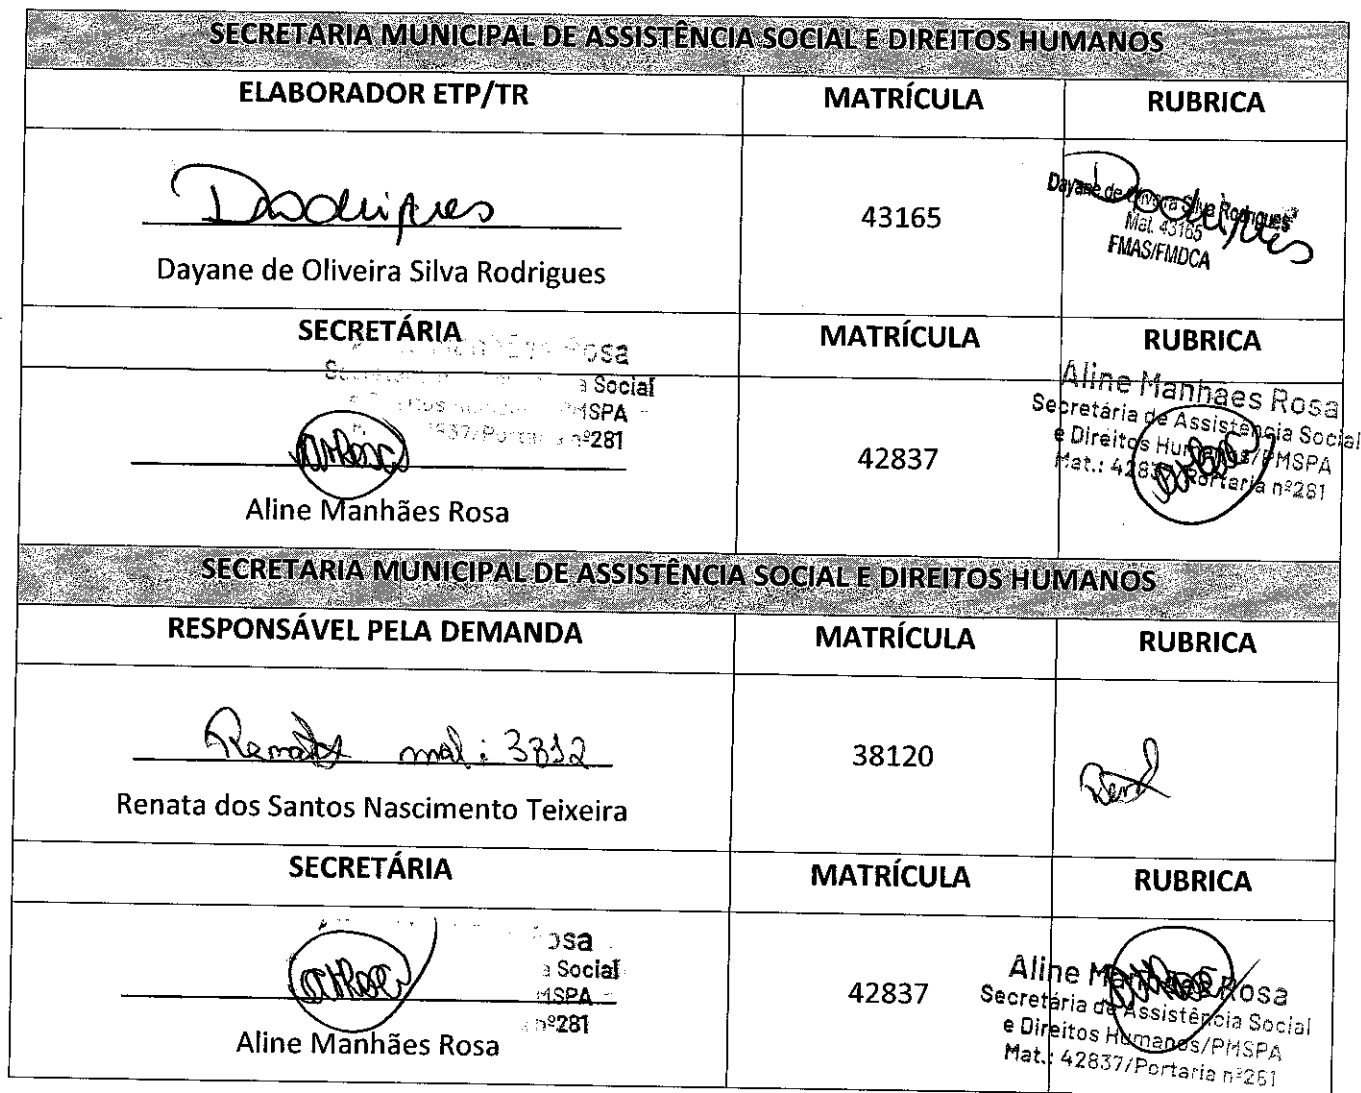 SECRETARIA MUNICIPAL DE ASSISTÊNCIA SOCIAL E DIREITOS HUMANOS
ELABORADOR ETP/TR MATRÍCULA RUBRICA
DRodrigues 43165 DRodrigues
Dayane de Oliveira Silva Rodrigues
Mat. 43165
FMAS/FMDCA
Dayane de Oliveira Silva Rodrigues
SECRETÁRIA MATRÍCULA RUBRICA
Rosa
a Social
PMSPA
nº281
Aline Manhães Rosa
42837
Aline Manhães Rosa
Secretária de Assistência Social
e Direitos Humanos/PMSPA
Mat.: 42837/Portaria nº281
SECRETARIA MUNICIPAL DE ASSISTÊNCIA SOCIAL E DIREITOS HUMANOS
RESPONSÁVEL PELA DEMANDA MATRÍCULA RUBRICA
Renata mat: 3812 38120
Renata dos Santos Nascimento Teixeira
SECRETÁRIA MATRÍCULA RUBRICA
a Social
nº281
Aline Manhães Rosa
42837
Aline Manhães Rosa
Secretária de Assistência Social
e Direitos Humanos/PMSPA
Mat.: 42837/Portaria nº281